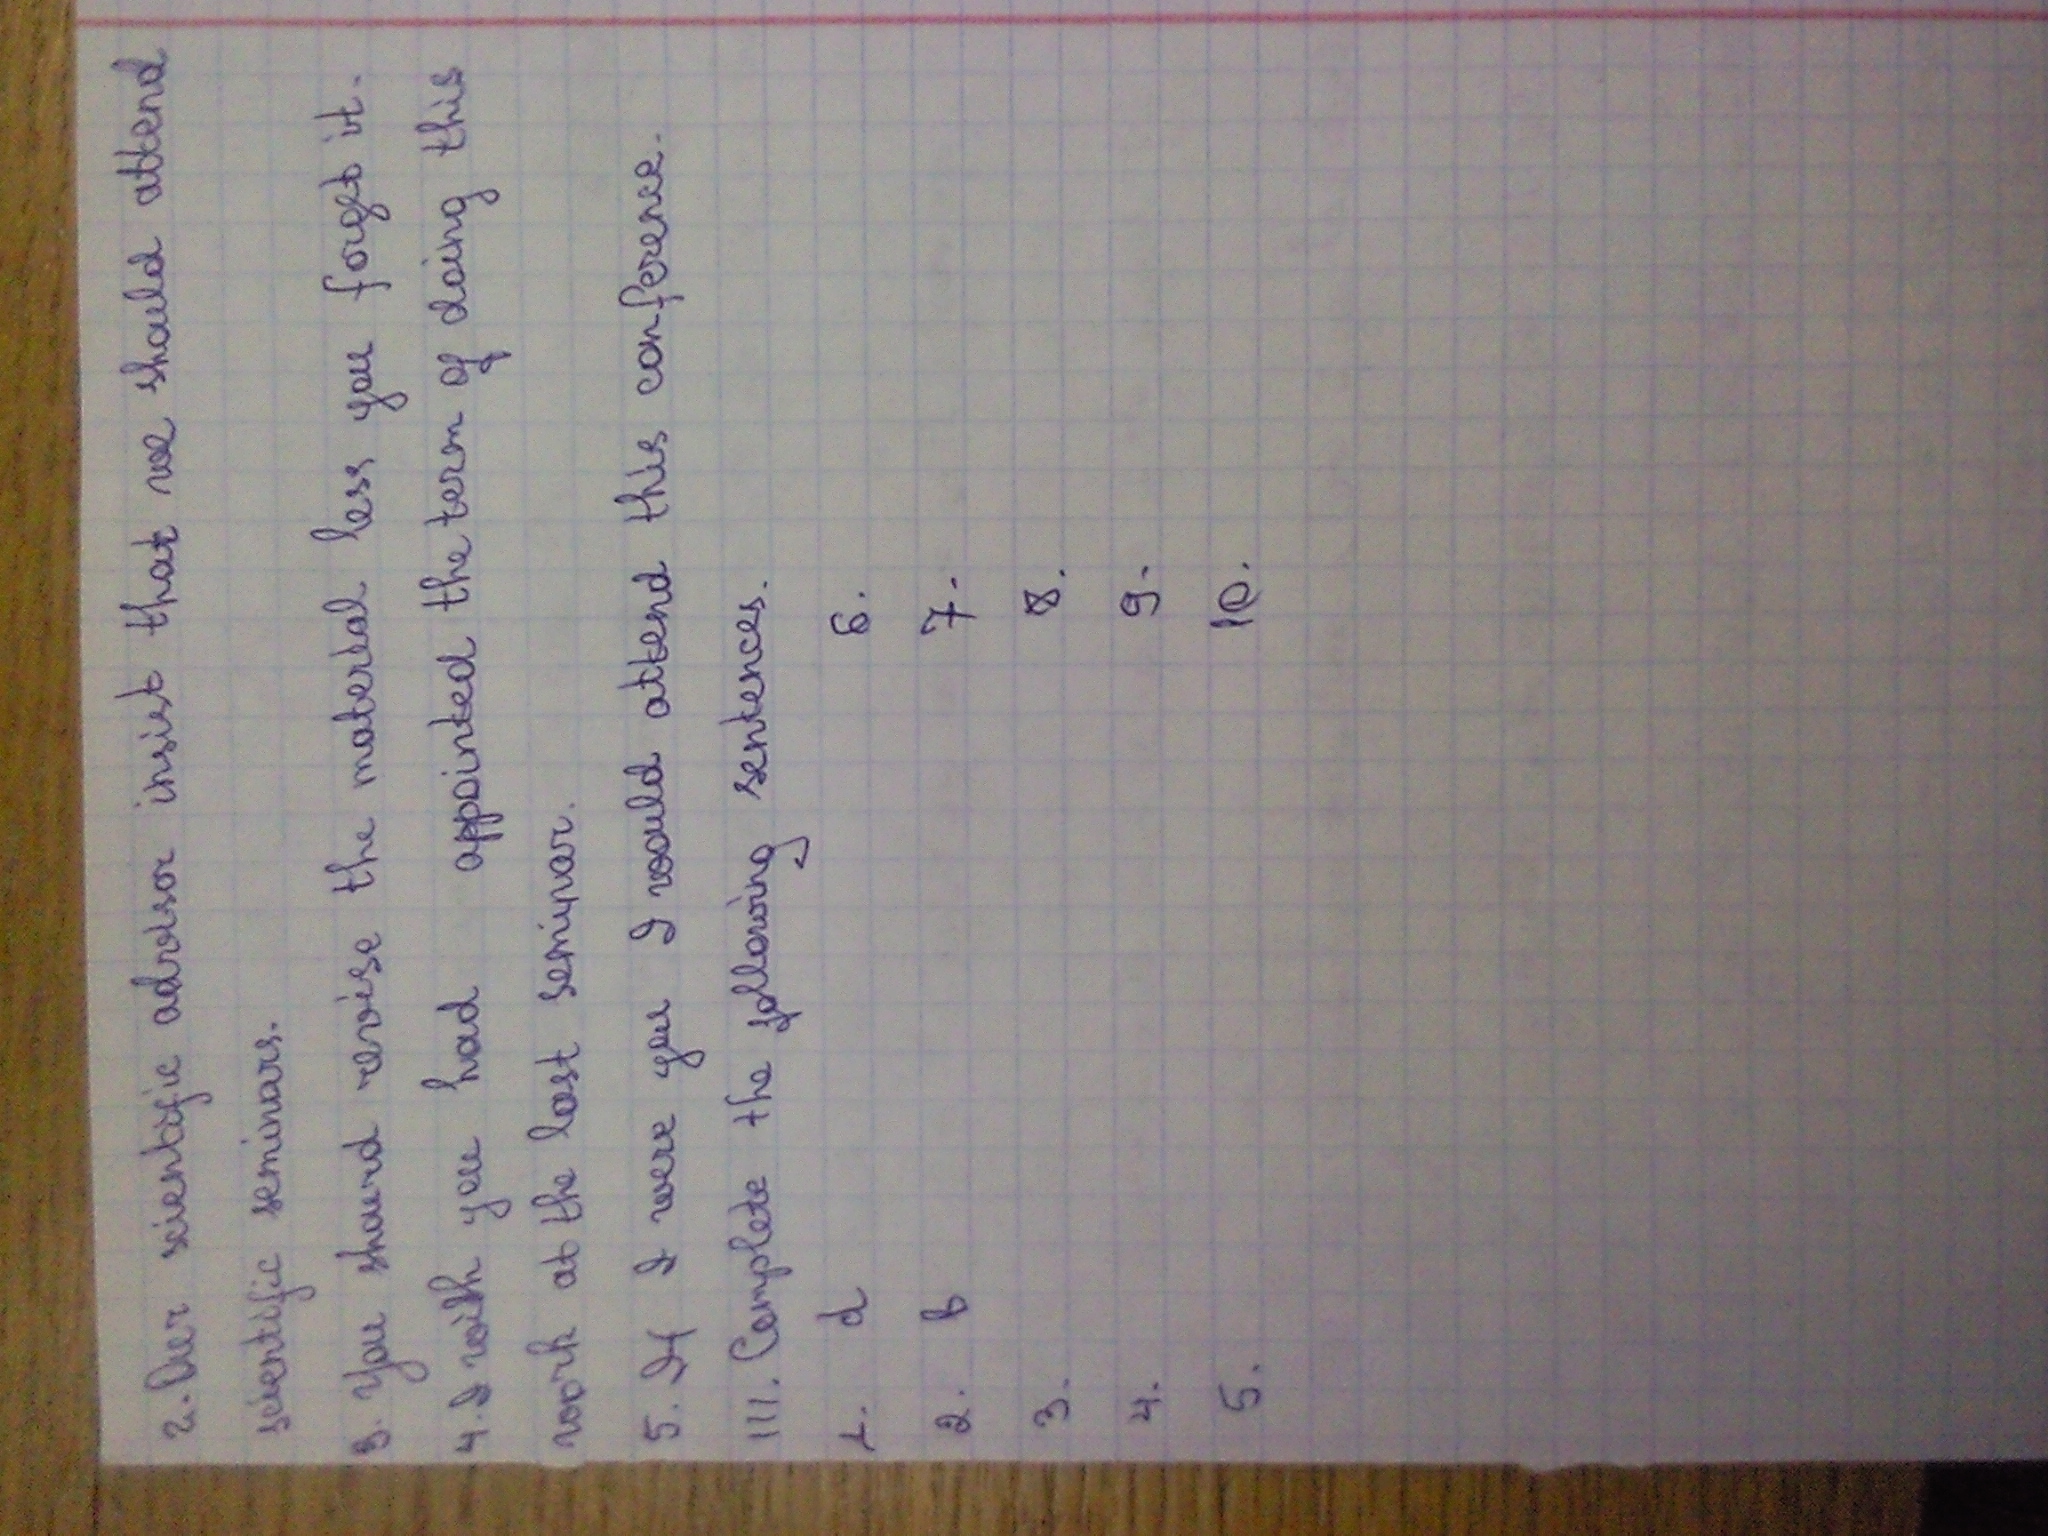 2. Our scientific advisor insist that we should attend
scientific seminars.
3. You shound revise the material less you forget it.
4. I wish you had appointed the term of doing this
work at the last seminar.
5. If I were you I would attend this conference.
III. Complete the following sentences.
1. d 6.
2. b 7.
3. 8.
4. 9.
5. 10.